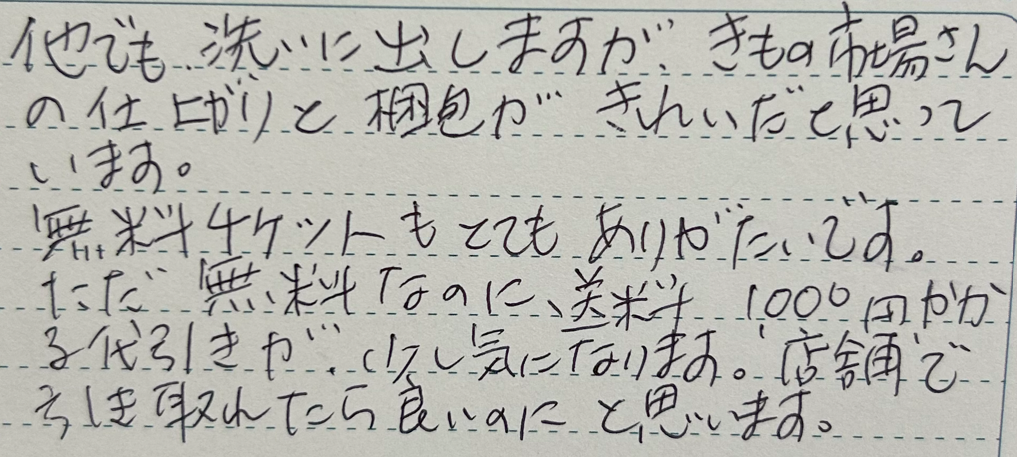 他でも洗いに出しますが、きもの市場さん
の仕上がりと梱包がきれいだと思って
います。
無料チケットもとてもありがたいです。
ただ無料なのに、送料1000円かか
る代引きが、少し気になります。店舗で
引き取れたら良いのにと思います。